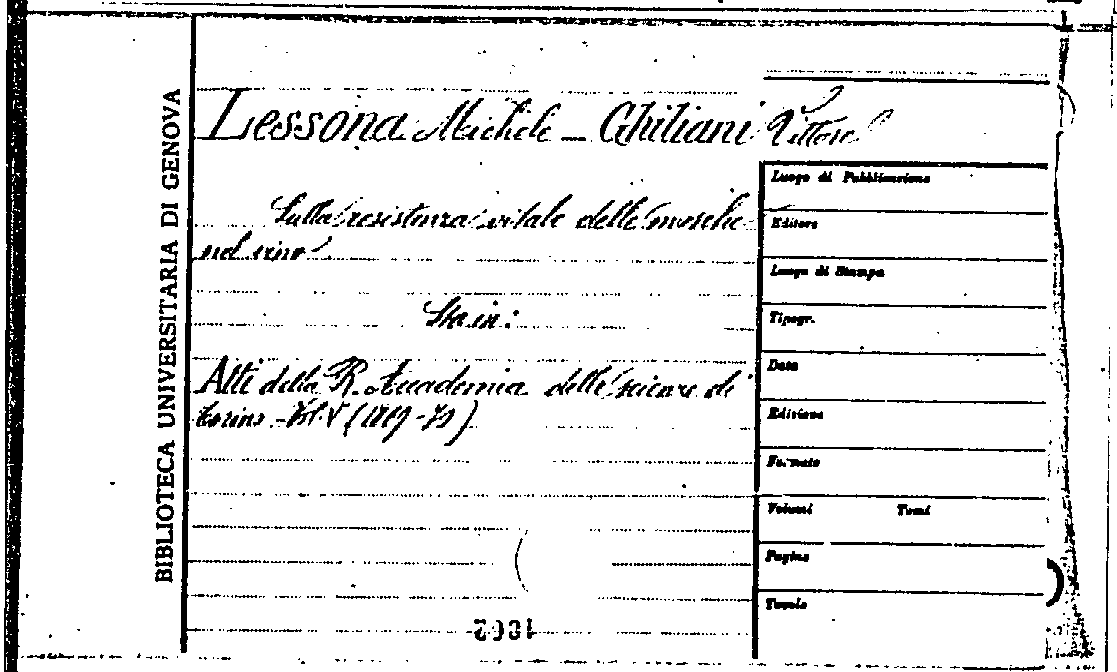 BIBLIOTECA UNIVERSITARIA DI GENOVA
Lessona Michele - Ghiliani Vittore
Sulla resistenza vitale delle mosche
nel vino
Sta in:
Atti della R. Accademia delle scienze di
Torino - Vol. V (1869-70)
Luogo di Pubblicazione
Editore
Luogo di Stampa
Tipogr.
Data
Edizione
Formato
Volumi Tomi
Pagine
Tavole